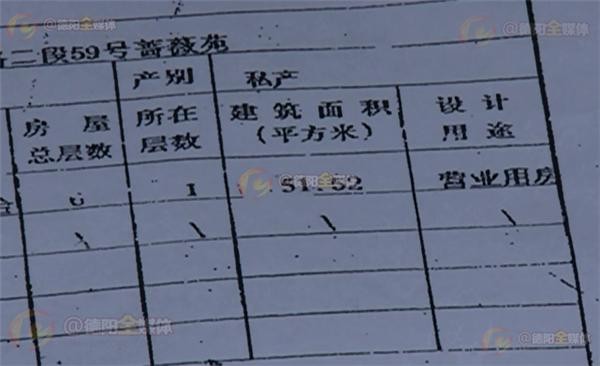 @德阳全媒体 @德阳全媒体
二段59号蔷薇苑
产别 私产
房屋 所在 建筑面积 设计
总层数 层数 (平方米) 用途
1 51.52 营业用房
@德阳全媒体
@德阳全媒体 @德阳全媒体